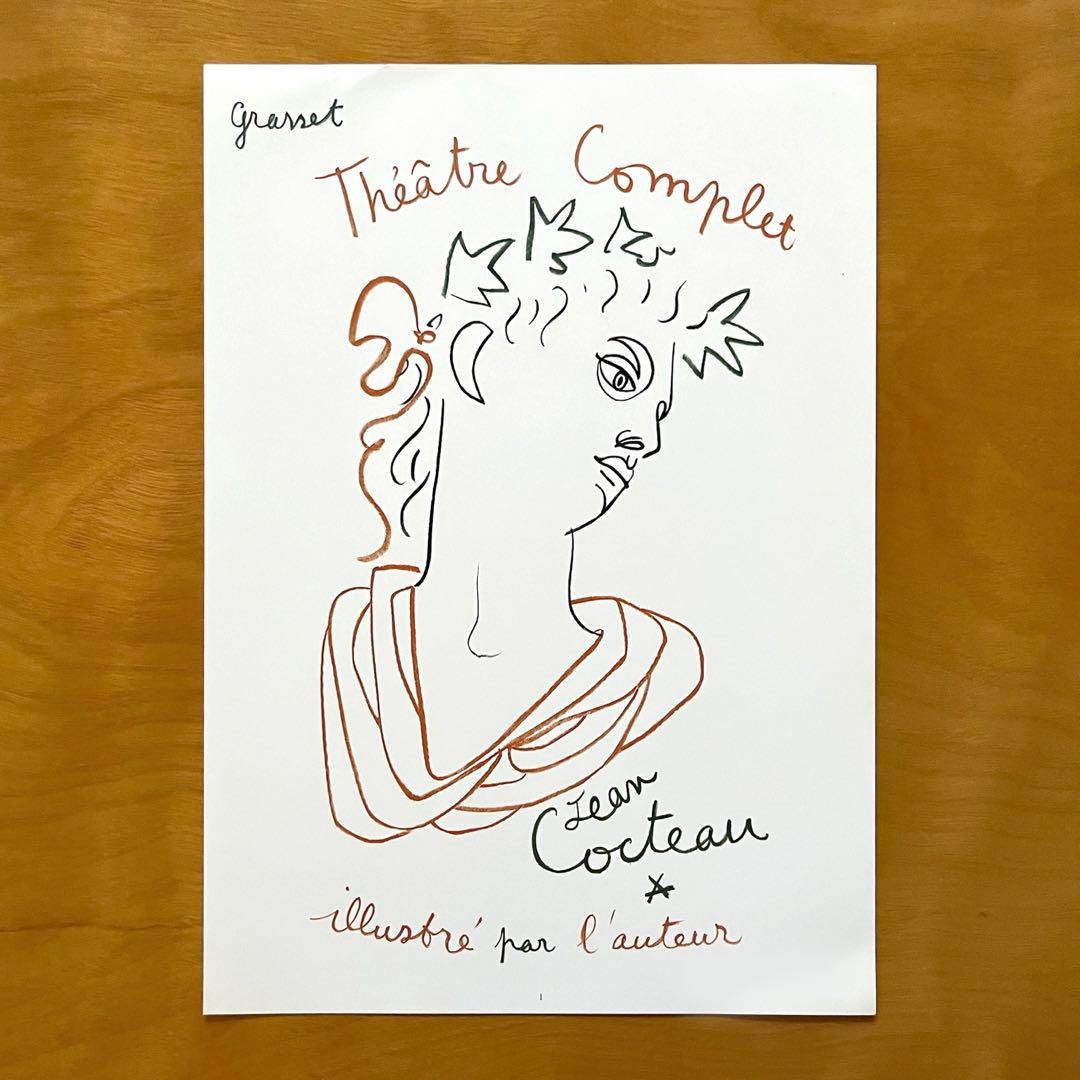 Grasset
Théâtre Complet
Jean
Cocteau
illustré par l'auteur
1